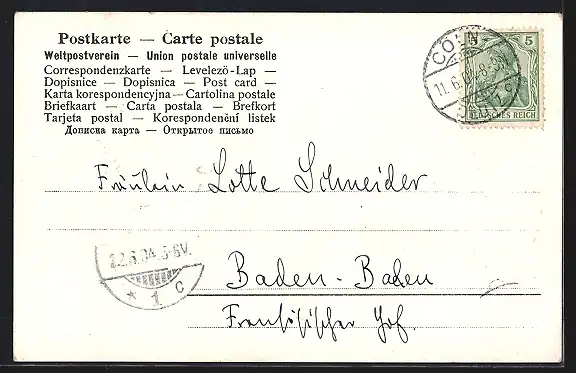 Postkarte — Carte postale
Weltpostverein — Union postale universelle
Correspondenzkarte — Levelező-Lap —
Dopisnice — Dopisnica — Post card —
Karta korespondencyjna — Cartolina postale
Briefkaart — Carta postala — Brefkort
Tarjeta postal — Korespondenční listek
Дописна карта — Открытое письмо
5 5
DEUTSCHES REICH
CÖLN
11.6.
Fräulein Lotte Schneider
* 1 c
Baden-Baden
Französischer Hof.